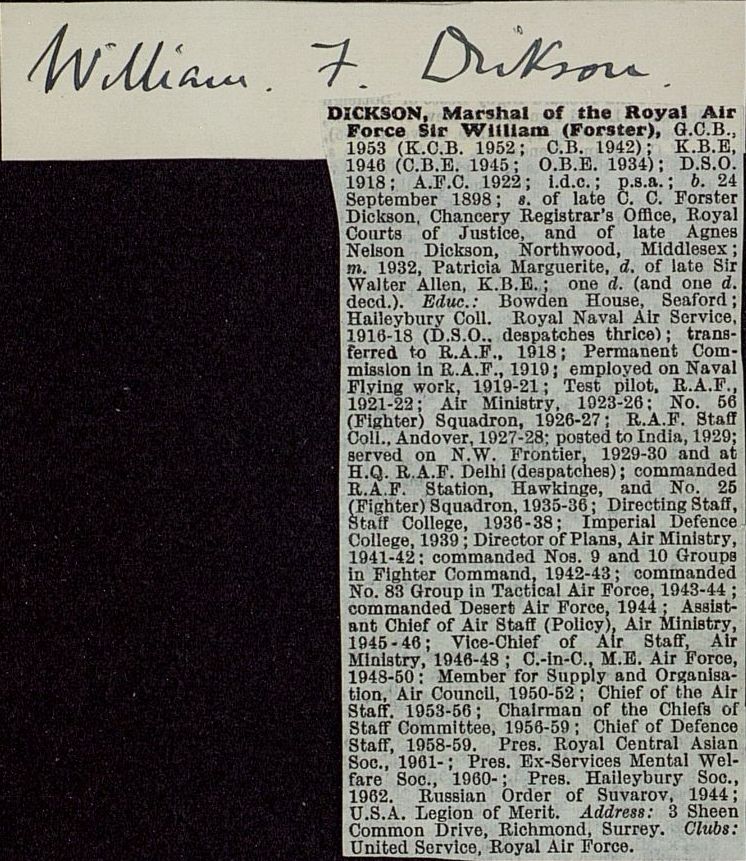 William. F. Dickson.
DICKSON, Marshal of the Royal Air
Force Sir William (Forster), G.C.B.,
1953 (K.C.B. 1952; C.B. 1942); K.B.E,
1946 (C.B.E. 1945; O.B.E. 1934); D.S.O.
1918; A.F.C. 1922; i.d.c.; p.s.a.; b. 24
September 1898; s. of late C. C. Forster
Dickson, Chancery Registrar's Office, Royal
Courts of Justice, and of late Agnes
Nelson Dickson, Northwood, Middlesex;
m. 1932, Patricia Marguerite, d. of late Sir
Walter Allen, K.B.E.; one d. (and one d.
decd.). Educ.: Bowden House, Seaford;
Haileybury Coll. Royal Naval Air Service,
1916-18 (D.S.O., despatches thrice); trans-
ferred to R.A.F., 1918; Permanent Com-
mission in R.A.F., 1919; employed on Naval
Flying work, 1919-21; Test pilot, R.A.F.,
1921-22; Air Ministry, 1923-26; No. 56
(Fighter) Squadron, 1926-27; R.A.F. Staff
Coll., Andover, 1927-28; posted to India, 1929;
served on N.W. Frontier, 1929-30 and at
H.Q. R.A.F. Delhi (despatches); commanded
R.A.F. Station, Hawkinge, and No. 25
(Fighter) Squadron, 1935-36; Directing Staff,
Staff College, 1936-38; Imperial Defence
College, 1939; Director of Plans, Air Ministry,
1941-42; commanded Nos. 9 and 10 Groups
in Fighter Command, 1942-43; commanded
No. 83 Group in Tactical Air Force, 1943-44;
commanded Desert Air Force, 1944; Assist-
ant Chief of Air Staff (Policy), Air Ministry,
1945-46; Vice-Chief of Air Staff, Air
Ministry, 1946-48; C.-in-C., M.E. Air Force,
1948-50; Member for Supply and Organisa-
tion, Air Council, 1950-52; Chief of the Air
Staff, 1953-56; Chairman of the Chiefs of
Staff Committee, 1956-59; Chief of Defence
Staff, 1958-59. Pres. Royal Central Asian
Soc., 1961-; Pres. Ex-Services Mental Wel-
fare Soc., 1960-; Pres. Haileybury Soc.,
1962. Russian Order of Suvarov, 1944;
U.S.A. Legion of Merit. Address: 3 Sheen
Common Drive, Richmond, Surrey. Clubs:
United Service, Royal Air Force.